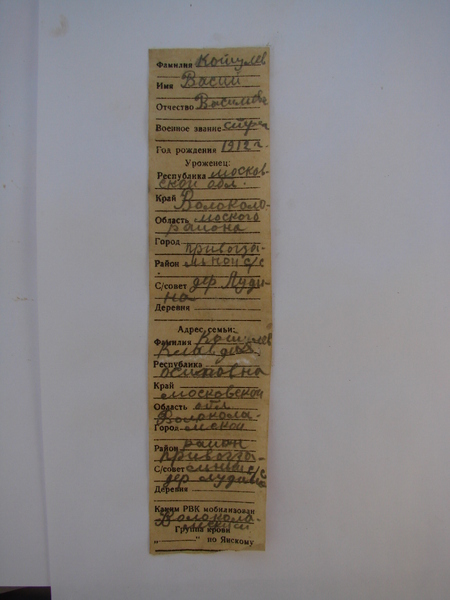 Фамилия Котулев
Имя Васий
Отчество
Военное звание
Год рождения 1912 г.
Уроженец:
Республика москов-
ской обл.
Край Волоколо-
Область моского
района
Город
Район
С/совет дер Луди-
на
Деревня
Адрес семьи:
Фамилия
Клавдия
Республика
осиповна
Край
московской
Область обл
Волокола-
Город мской
Район район
С/совет
дер Лудина
Деревня
Каким РВК мобилизован
Волоколо-
мский
Группа крови
„ “ по Янскому